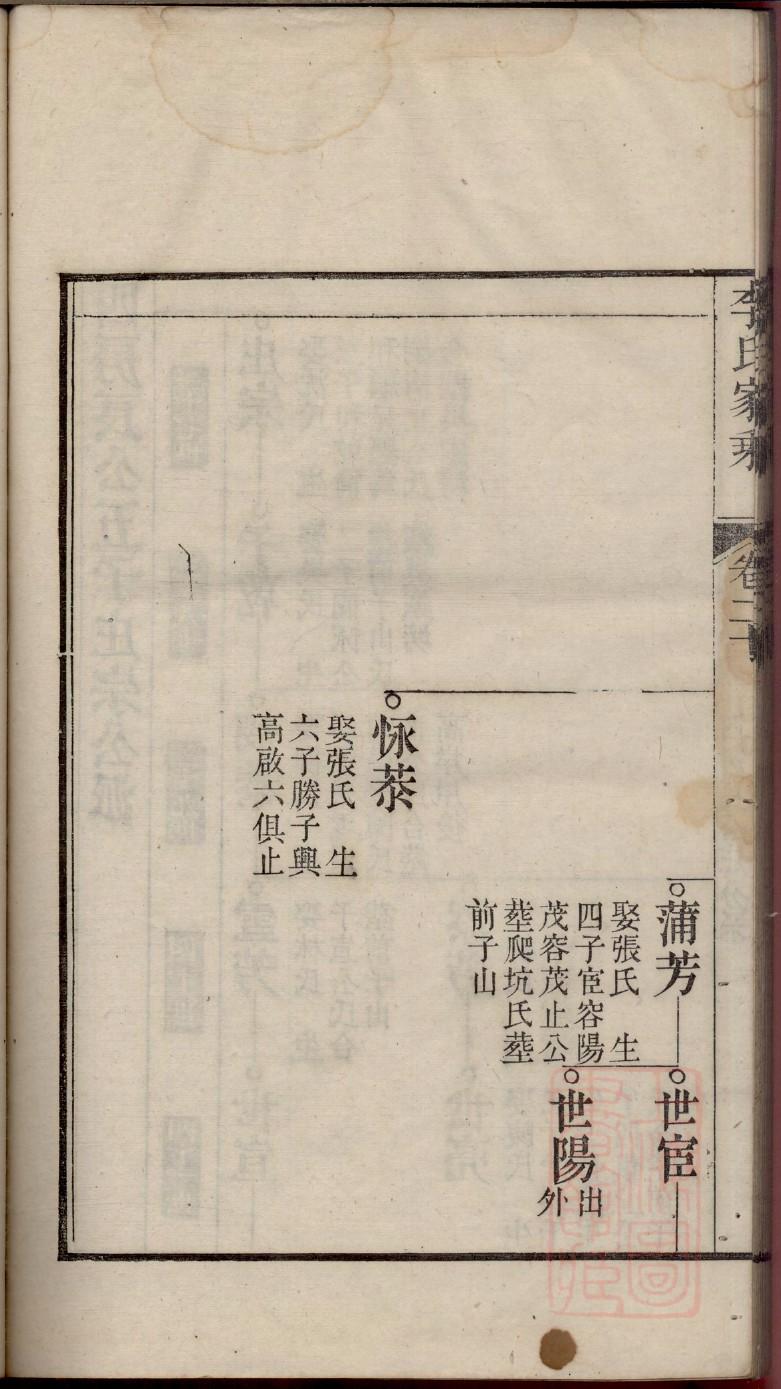 李氏家乘
卷二
蒲芳
娶張氏 生
四子宧容陽
茂容茂止公
塟爬坑氏塟
前子山
世宧
世陽
出
外
怺恭
娶張氏 生
六子勝子興
高啟六俱止